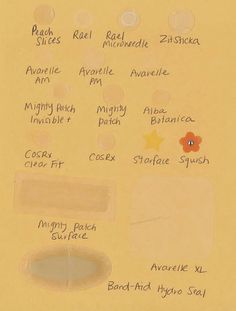 Peach Slices
Rael
Rael Microneedle
Zitsticka
Avarelle AM
Avarelle PM
Avarelle
Mighty Patch Invisible +
Mighty Patch
Alba Botanica
COSRx Clear Fit
COSRx
Starface
Squish
Mighty Patch Surface
Avarelle XL
Band-Aid Hydro Seal